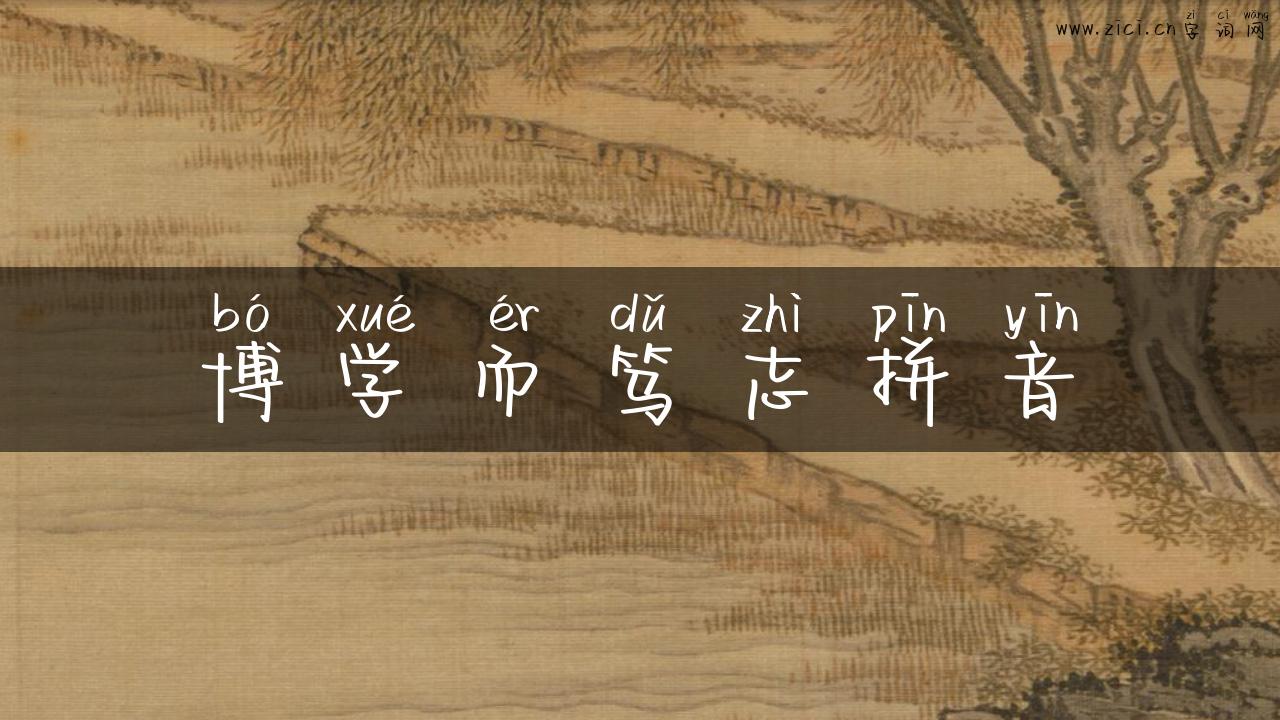 zì cí wǎng
www.zici.cn 字词网
bó xué ér dǔ zhì pīn yīn
博学而笃志拼音